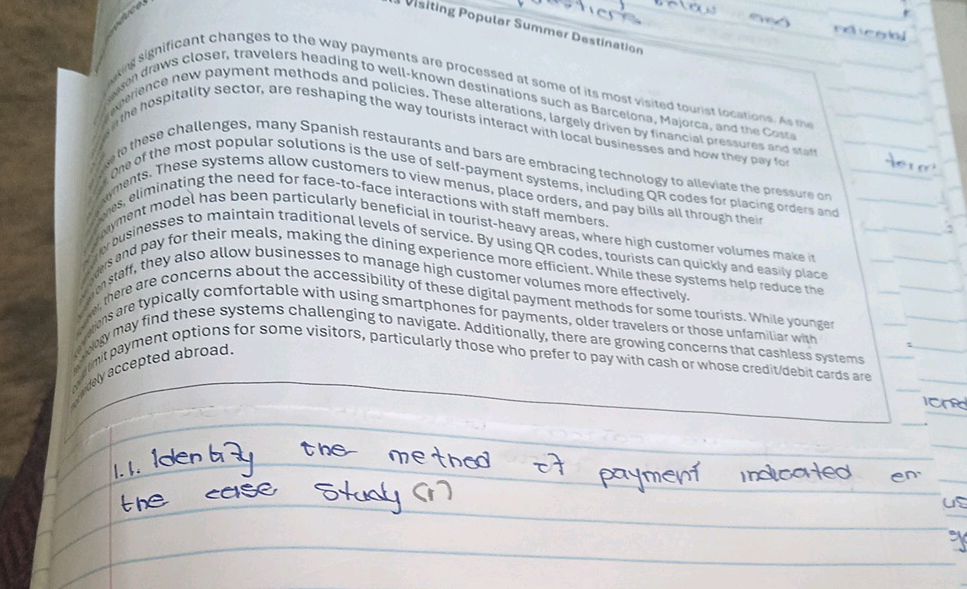 Visiting Popular Summer Destination
significant changes to the way payments are processed at some of its most visited tourist locations. As the
draws closer, travelers heading to well-known destinations such as Barcelona, Majorca, and the Costa
experience new payment methods and policies. These alterations, largely driven by financial pressures and staff
in the hospitality sector, are reshaping the way tourists interact with local businesses and how they pay for
to these challenges, many Spanish restaurants and bars are embracing technology to alleviate the pressure on
One of the most popular solutions is the use of self-payment systems, including QR codes for placing orders and
These systems allow customers to view menus, place orders, and pay bills all through their
eliminating the need for face-to-face interactions with staff members.
payment model has been particularly beneficial in tourist-heavy areas, where high customer volumes make it
for businesses to maintain traditional levels of service. By using QR codes, tourists can quickly and easily place
and pay for their meals, making the dining experience more efficient. While these systems help reduce the
on staff, they also allow businesses to manage high customer volumes more effectively.
there are concerns about the accessibility of these digital payment methods for some tourists. While younger
are typically comfortable with using smartphones for payments, older travelers or those unfamiliar with
may find these systems challenging to navigate. Additionally, there are growing concerns that cashless systems
limit payment options for some visitors, particularly those who prefer to pay with cash or whose credit/debit cards are
widely accepted abroad.
1.1. Identify the method of payment indicated on
the case study (1)